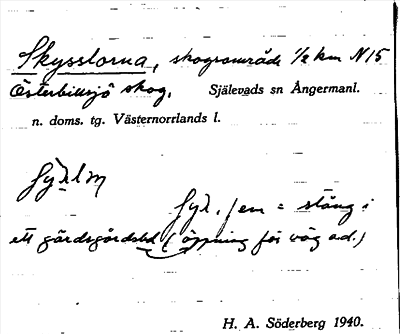 Skysslorna, skogsområde ½ km N 15
Österbillsjö skog. Själevads sn Ångermanl.
n. doms. tg. Västernorrlands l.
fyr. / en = stång i
ett gärdsgårdsled (öppning för väg o.d.)
H. A. Söderberg 1940.